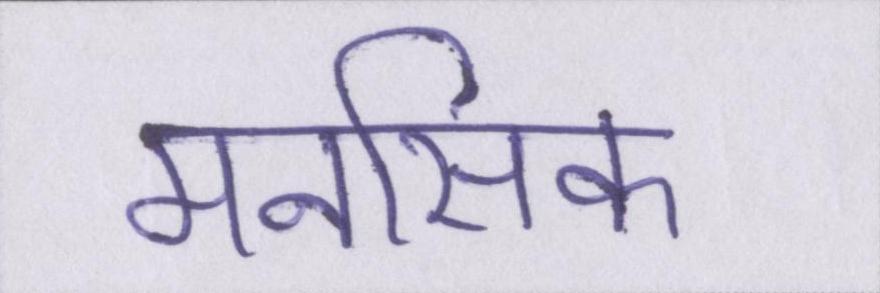 मनसिक